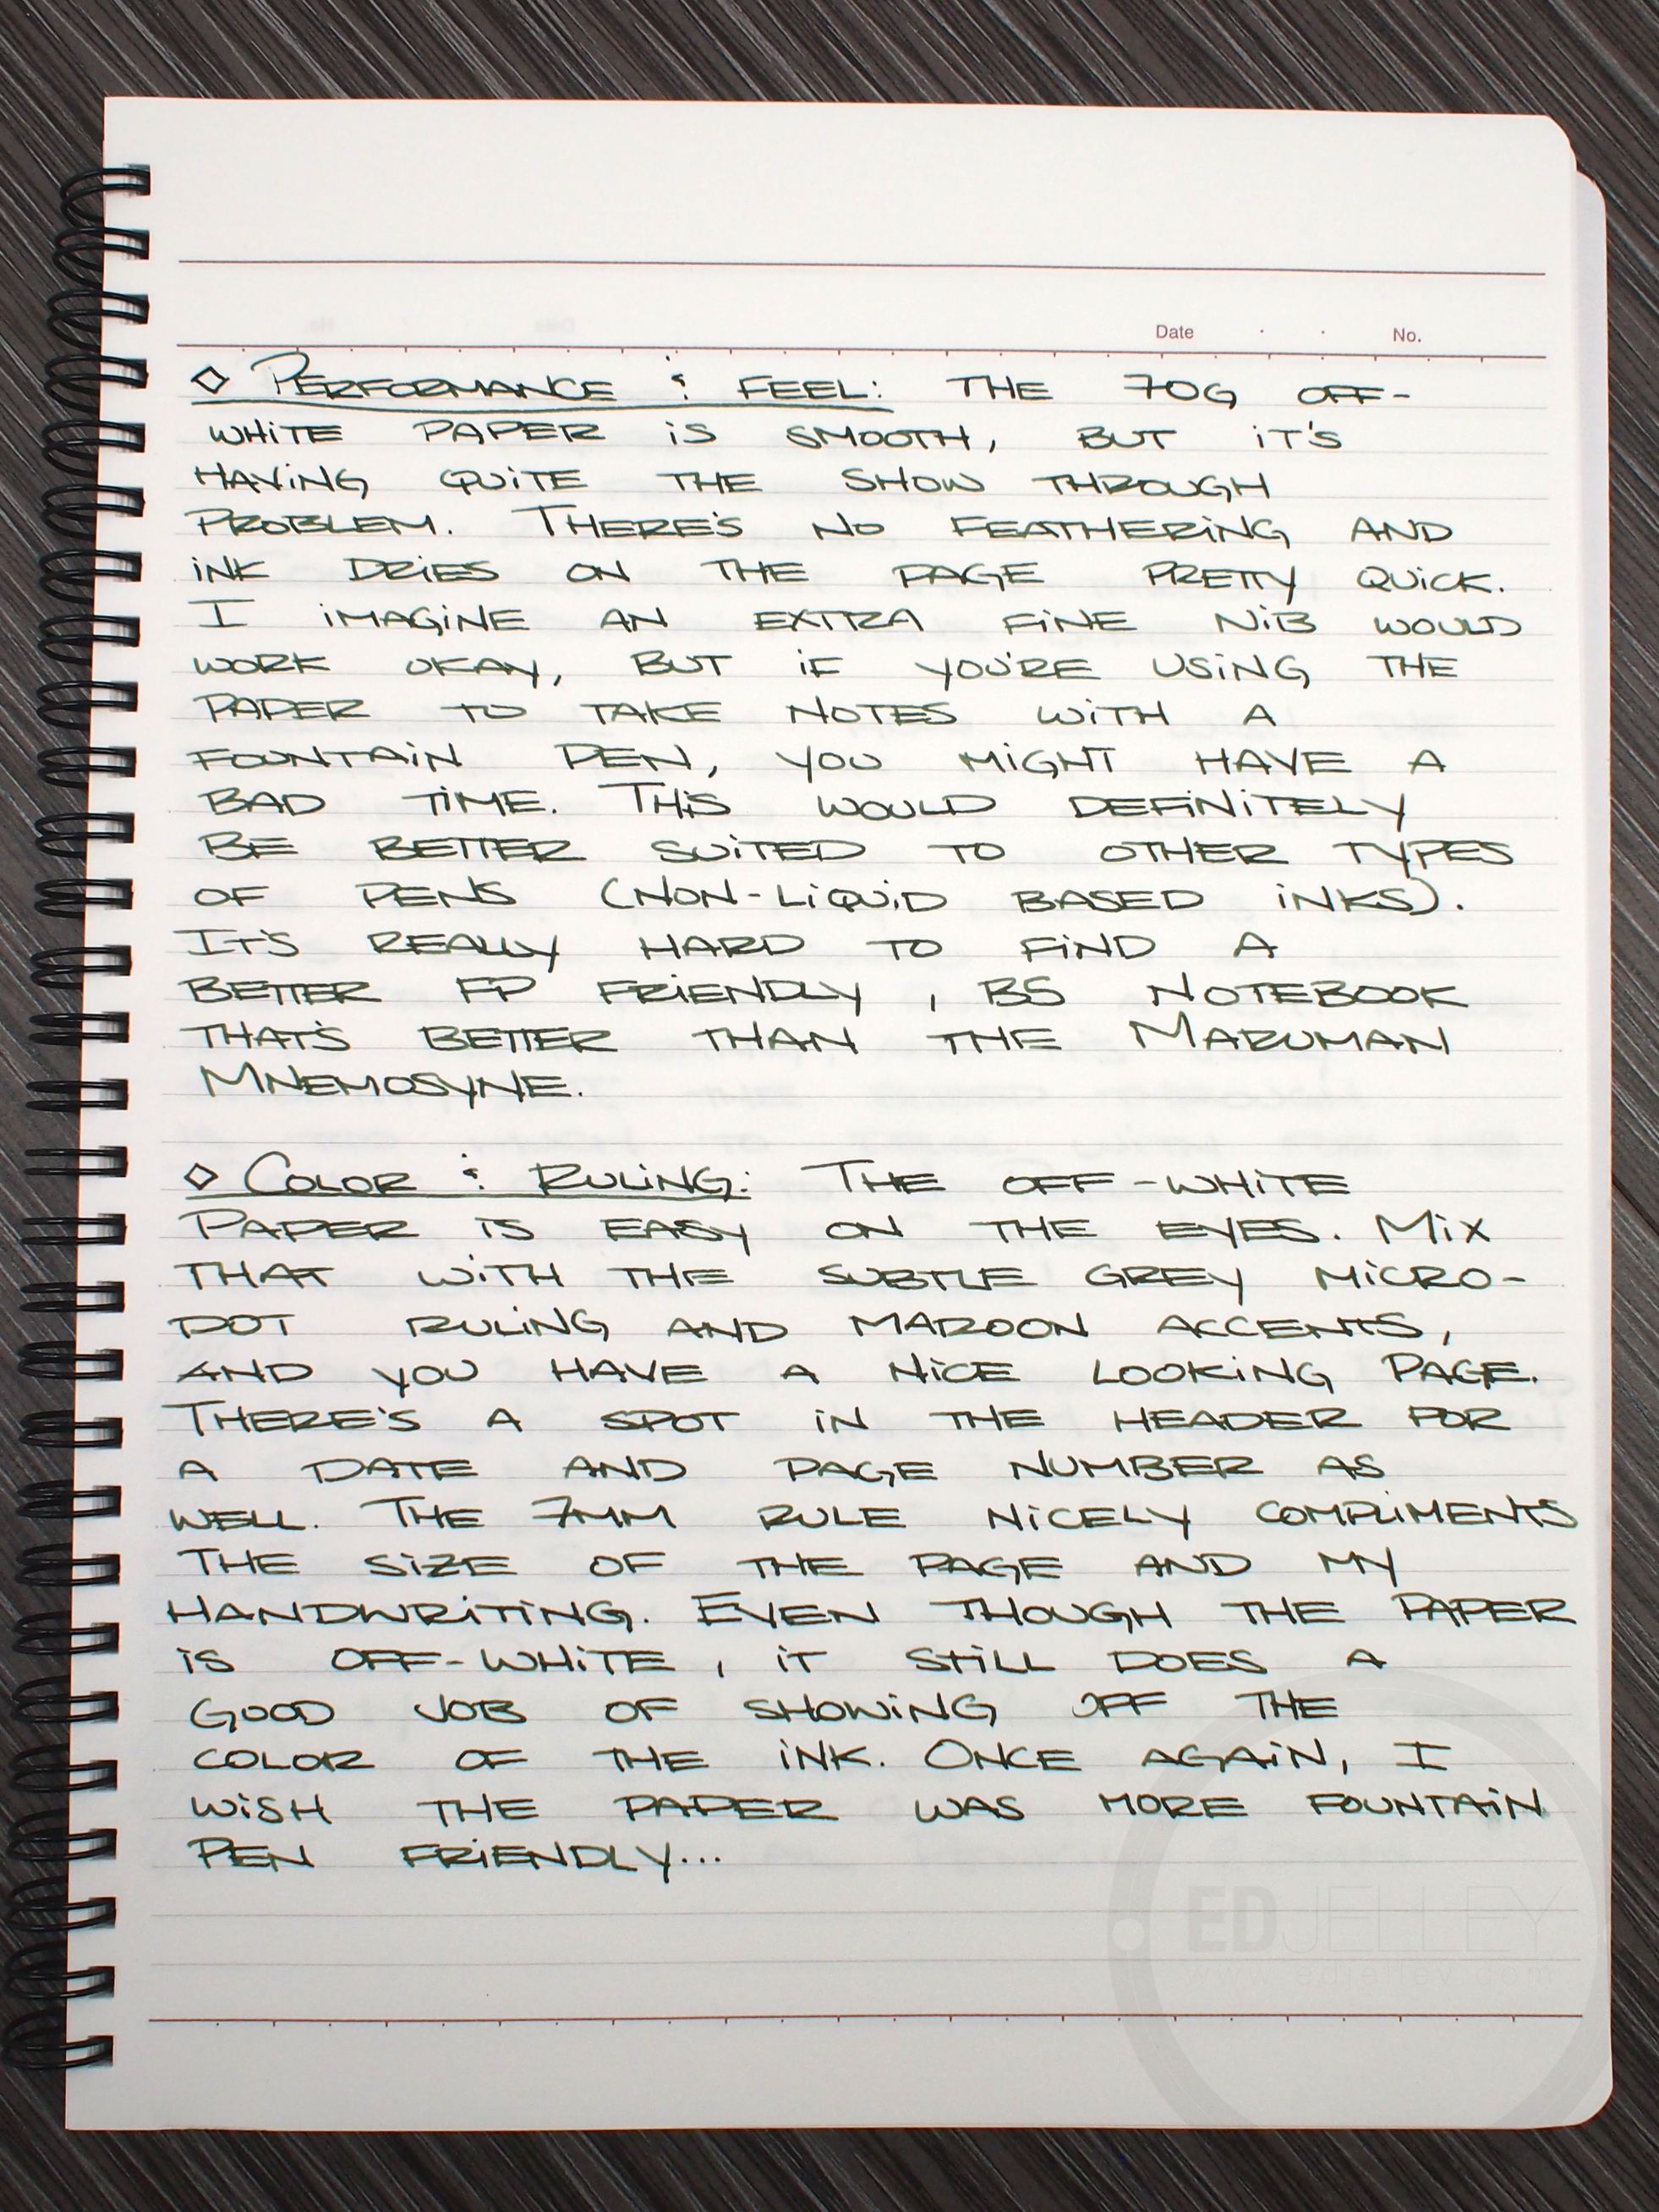 Date . . No.
◇ PERFORMANCE & FEEL: THE 70G OFF-
WHITE PAPER IS SMOOTH, BUT IT'S
HAVING QUITE THE SHOW THROUGH
PROBLEM. THERE'S NO FEATHERING AND
INK DRIES ON THE PAGE PRETTY QUICK.
I IMAGINE AN EXTRA FINE NIB WOULD
WORK OKAY, BUT IF YOU'RE USING THE
PAPER TO TAKE NOTES WITH A
FOUNTAIN PEN, YOU MIGHT HAVE A
BAD TIME. THIS WOULD DEFINITELY
BE BETTER SUITED TO OTHER TYPES
OF PENS (NON-LIQUID BASED INKS).
IT'S REALLY HARD TO FIND A
BETTER FP FRIENDLY, B5 NOTEBOOK
THAT'S BETTER THAN THE MARUMAN
MNEMOSYNE.
◇ COLOR & RULING: THE OFF-WHITE
PAPER IS EASY ON THE EYES. MIX
THAT WITH THE SUBTLE GREY MICRO-
DOT RULING AND MAROON ACCENTS,
AND YOU HAVE A NICE LOOKING PAGE.
THERE'S A SPOT IN THE HEADER FOR
A DATE AND PAGE NUMBER AS
WELL. THE 7MM RULE NICELY COMPLIMENTS
THE SIZE OF THE PAGE AND MY
HANDWRITING. EVEN THOUGH THE PAPER
IS OFF-WHITE, IT STILL DOES A
GOOD JOB OF SHOWING OFF THE
COLOR OF THE INK. ONCE AGAIN, I
WISH THE PAPER WAS MORE FOUNTAIN
PEN FRIENDLY...
EDJELLEY
www.edjelley.com